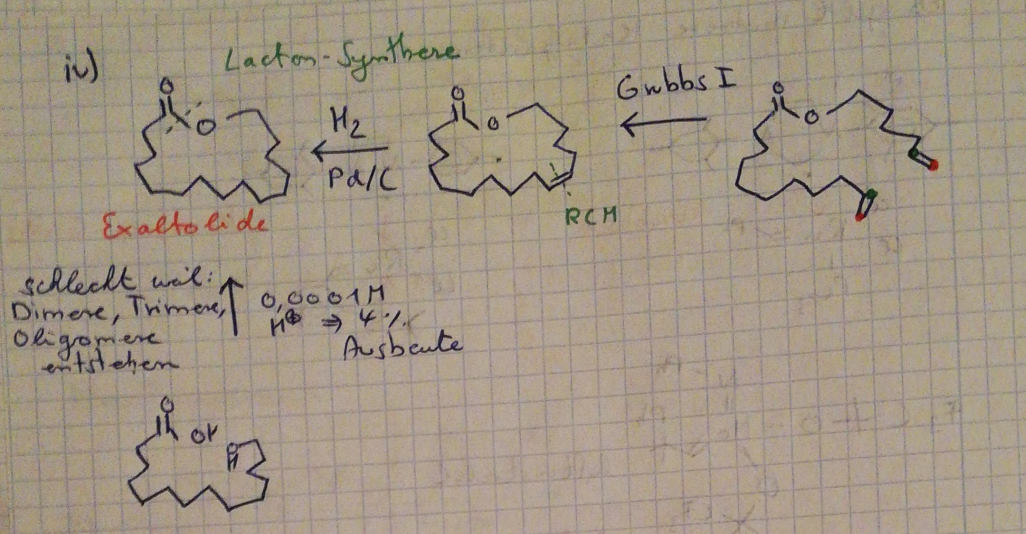 iv)
Lacton-Synthese
O
O
H₂
Pd/C
O
O
Grubbs I
O
O
Exaltolide
RCM
schlecht weil:
Dimere, Trimere,
Oligomere
entstehen
0,0001M
H⊕ ⇒ 4%
Ausbeute
O
OH
O
H